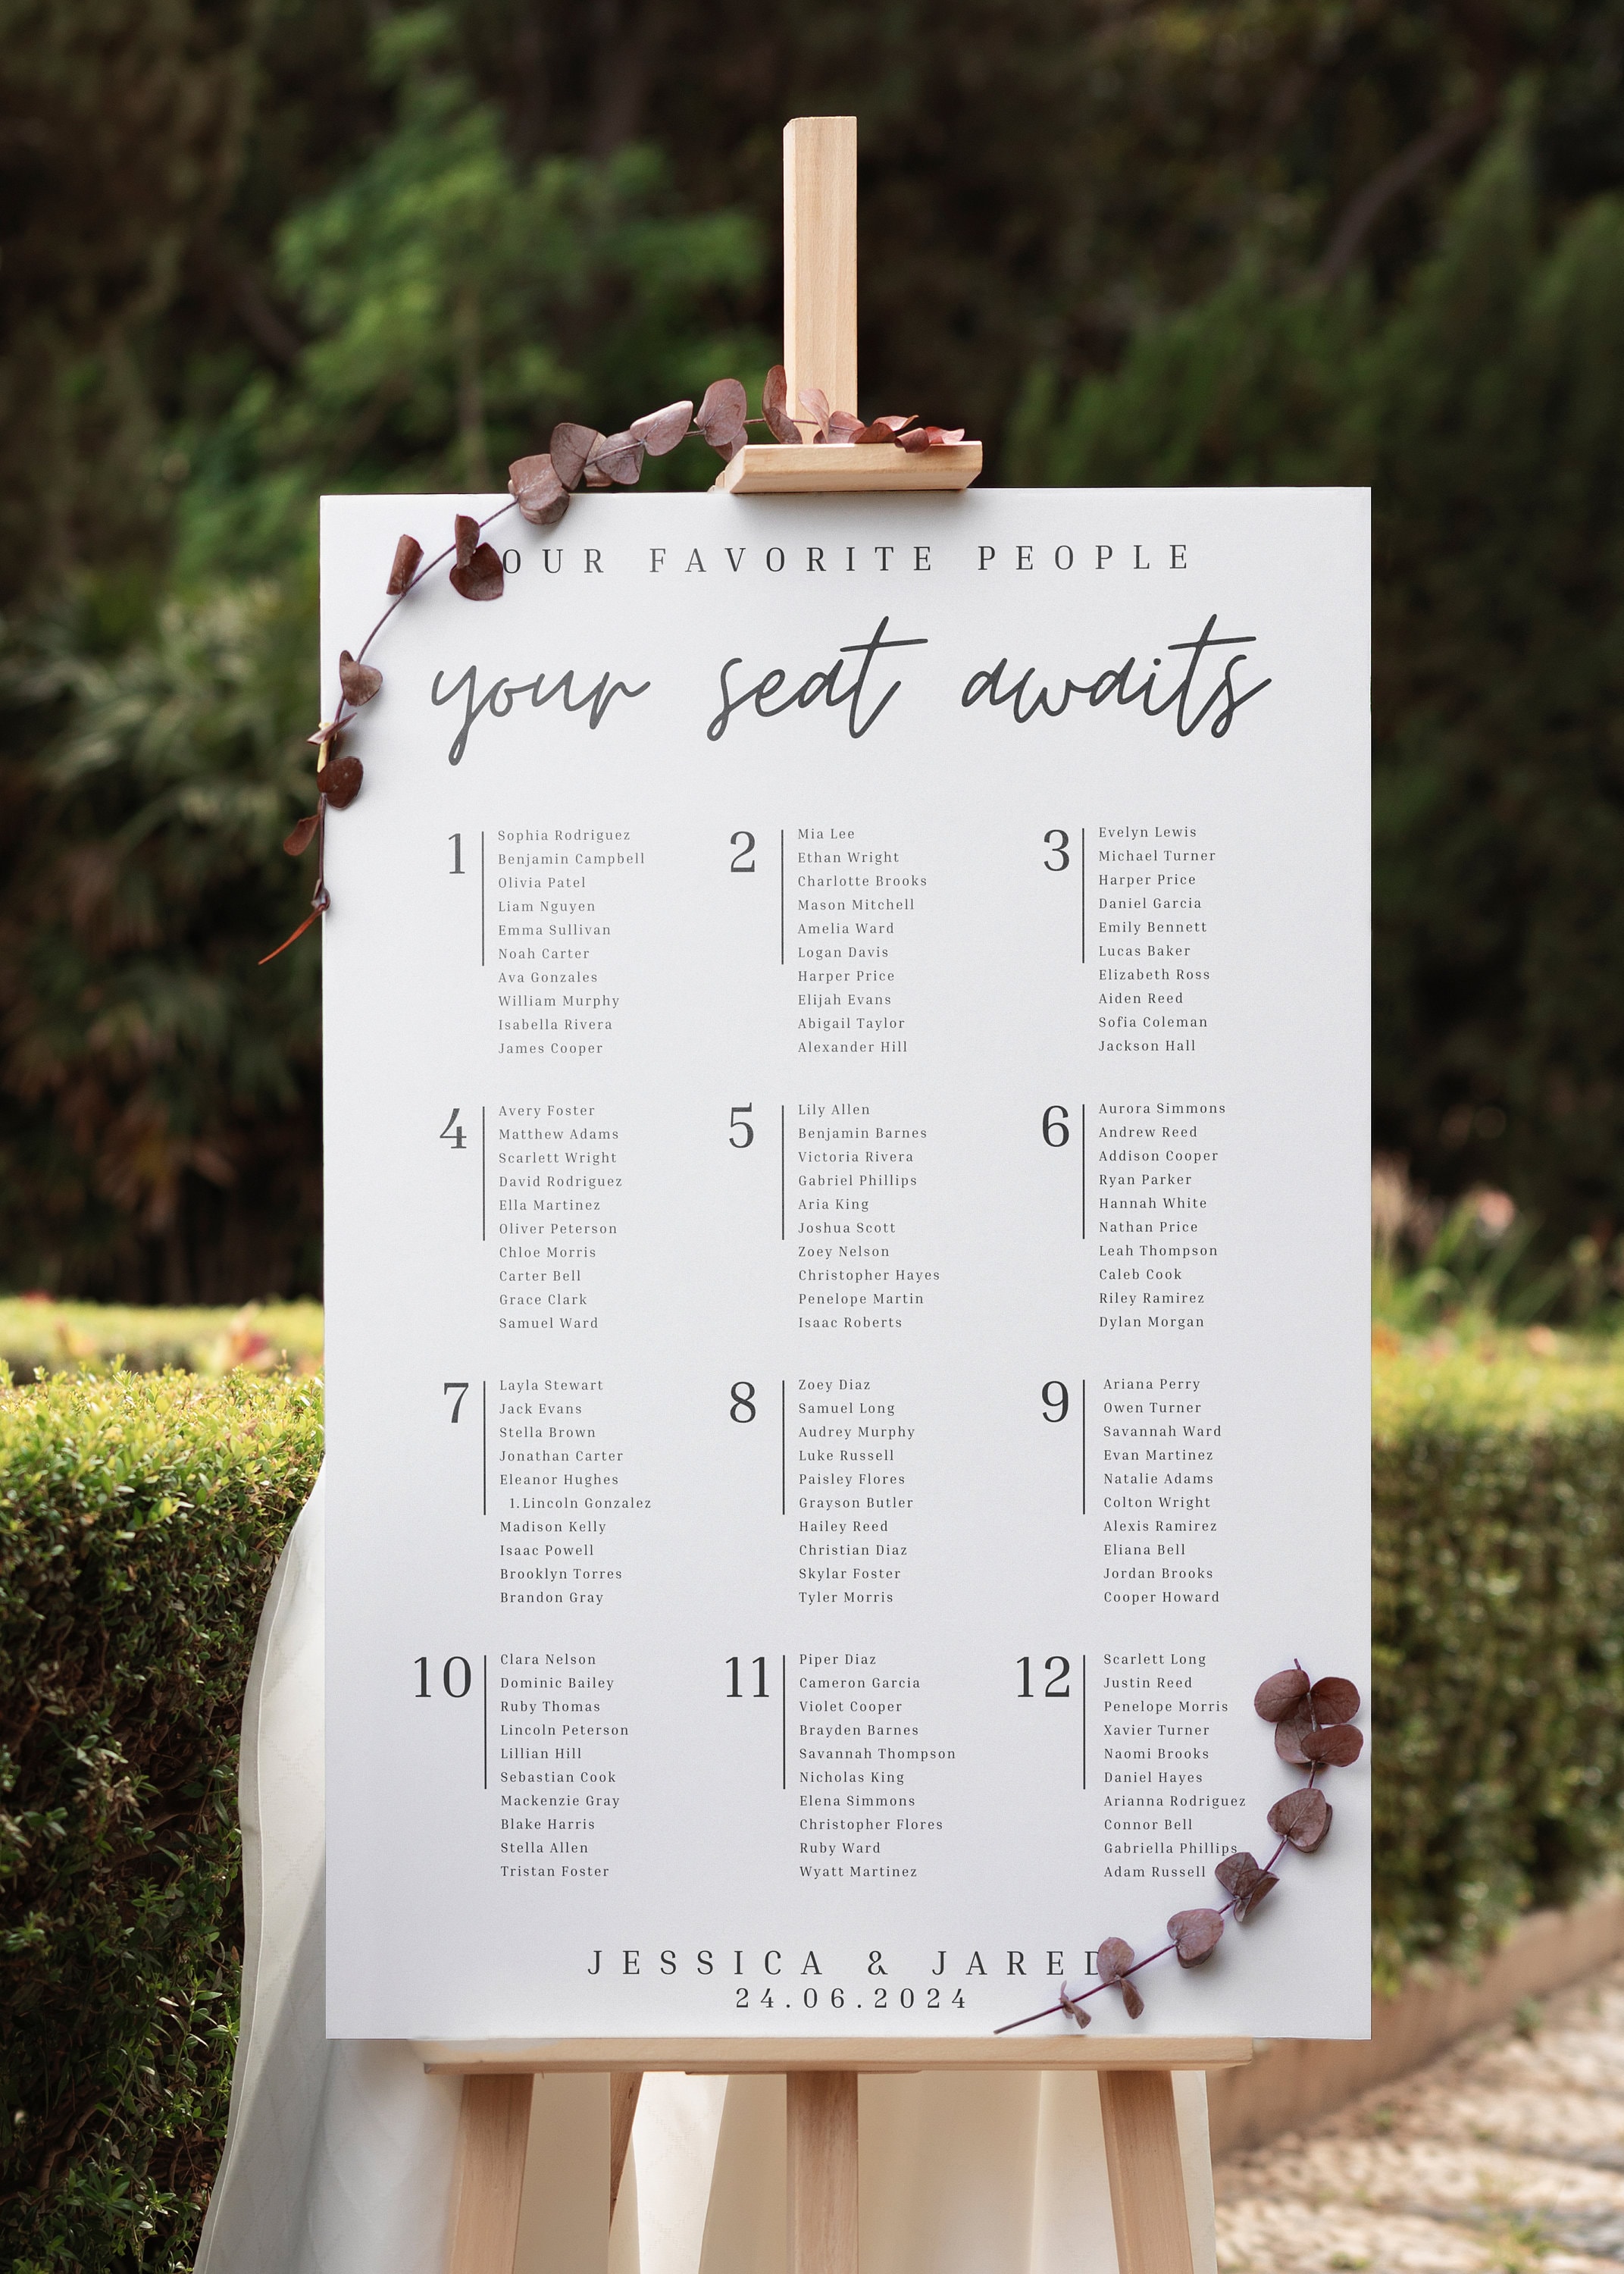 OUR FAVORITE PEOPLE
your seat awaits
1
Sophia Rodriguez
Benjamin Campbell
Olivia Patel
Liam Nguyen
Emma Sullivan
Noah Carter
Ava Gonzales
William Murphy
Isabella Rivera
James Cooper
2
Mia Lee
Ethan Wright
Charlotte Brooks
Mason Mitchell
Amelia Ward
Logan Davis
Harper Price
Elijah Evans
Abigail Taylor
Alexander Hill
3
Evelyn Lewis
Michael Turner
Harper Price
Daniel Garcia
Emily Bennett
Lucas Baker
Elizabeth Ross
Aiden Reed
Sofia Coleman
Jackson Hall
4
Avery Foster
Matthew Adams
Scarlett Wright
David Rodriguez
Ella Martinez
Oliver Peterson
Chloe Morris
Carter Bell
Grace Clark
Samuel Ward
5
Lily Allen
Benjamin Barnes
Victoria Rivera
Gabriel Phillips
Aria King
Joshua Scott
Zoey Nelson
Christopher Hayes
Penelope Martin
Isaac Roberts
6
Aurora Simmons
Andrew Reed
Addison Cooper
Ryan Parker
Hannah White
Nathan Price
Leah Thompson
Caleb Cook
Riley Ramirez
Dylan Morgan
7
Layla Stewart
Jack Evans
Stella Brown
Jonathan Carter
Eleanor Hughes
1. Lincoln Gonzalez
Madison Kelly
Isaac Powell
Brooklyn Torres
Brandon Gray
8
Zoey Diaz
Samuel Long
Audrey Murphy
Luke Russell
Paisley Flores
Grayson Butler
Hailey Reed
Christian Diaz
Skylar Foster
Tyler Morris
9
Ariana Perry
Owen Turner
Savannah Ward
Evan Martinez
Natalie Adams
Colton Wright
Alexis Ramirez
Eliana Bell
Jordan Brooks
Cooper Howard
10
Clara Nelson
Dominic Bailey
Ruby Thomas
Lincoln Peterson
Lillian Hill
Sebastian Cook
Mackenzie Gray
Blake Harris
Stella Allen
Tristan Foster
11
Piper Diaz
Cameron Garcia
Violet Cooper
Brayden Barnes
Savannah Thompson
Nicholas King
Elena Simmons
Christopher Flores
Ruby Ward
Wyatt Martinez
12
Scarlett Long
Justin Reed
Penelope Morris
Xavier Turner
Naomi Brooks
Daniel Hayes
Arianna Rodriguez
Connor Bell
Gabriella Phillips
Adam Russell
JESSICA & JARED
24.06.2024